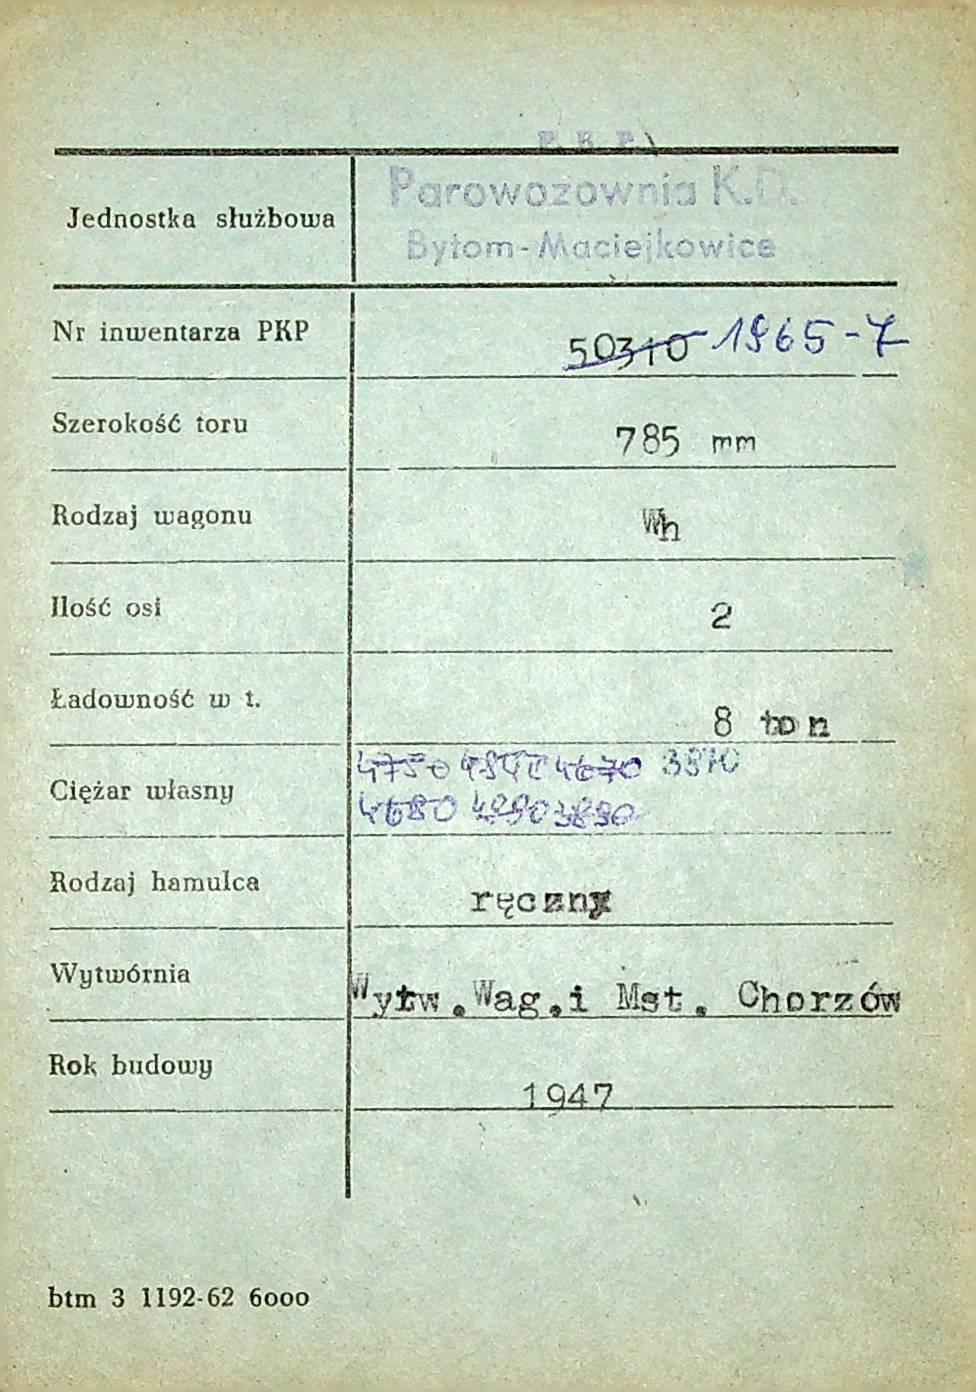 P. K. P.
Jednostka służbowa
Parowozownia K.D.
Bytom-Maciejkowice
Nr inwentarza PKP 50310 1965-7
Szerokość toru 785 mm
Rodzaj wagonu Wh
Ilość osi 2
Ładowność w t. 8 ton
Ciężar własny
4750 4670 3870
4680 4290 3890
Rodzaj hamulca ręczny
Wytwórnia Wytw.Wag.i Mst. Chorzów
Rok budowy 1947
btm 3 1192-62 6ooo